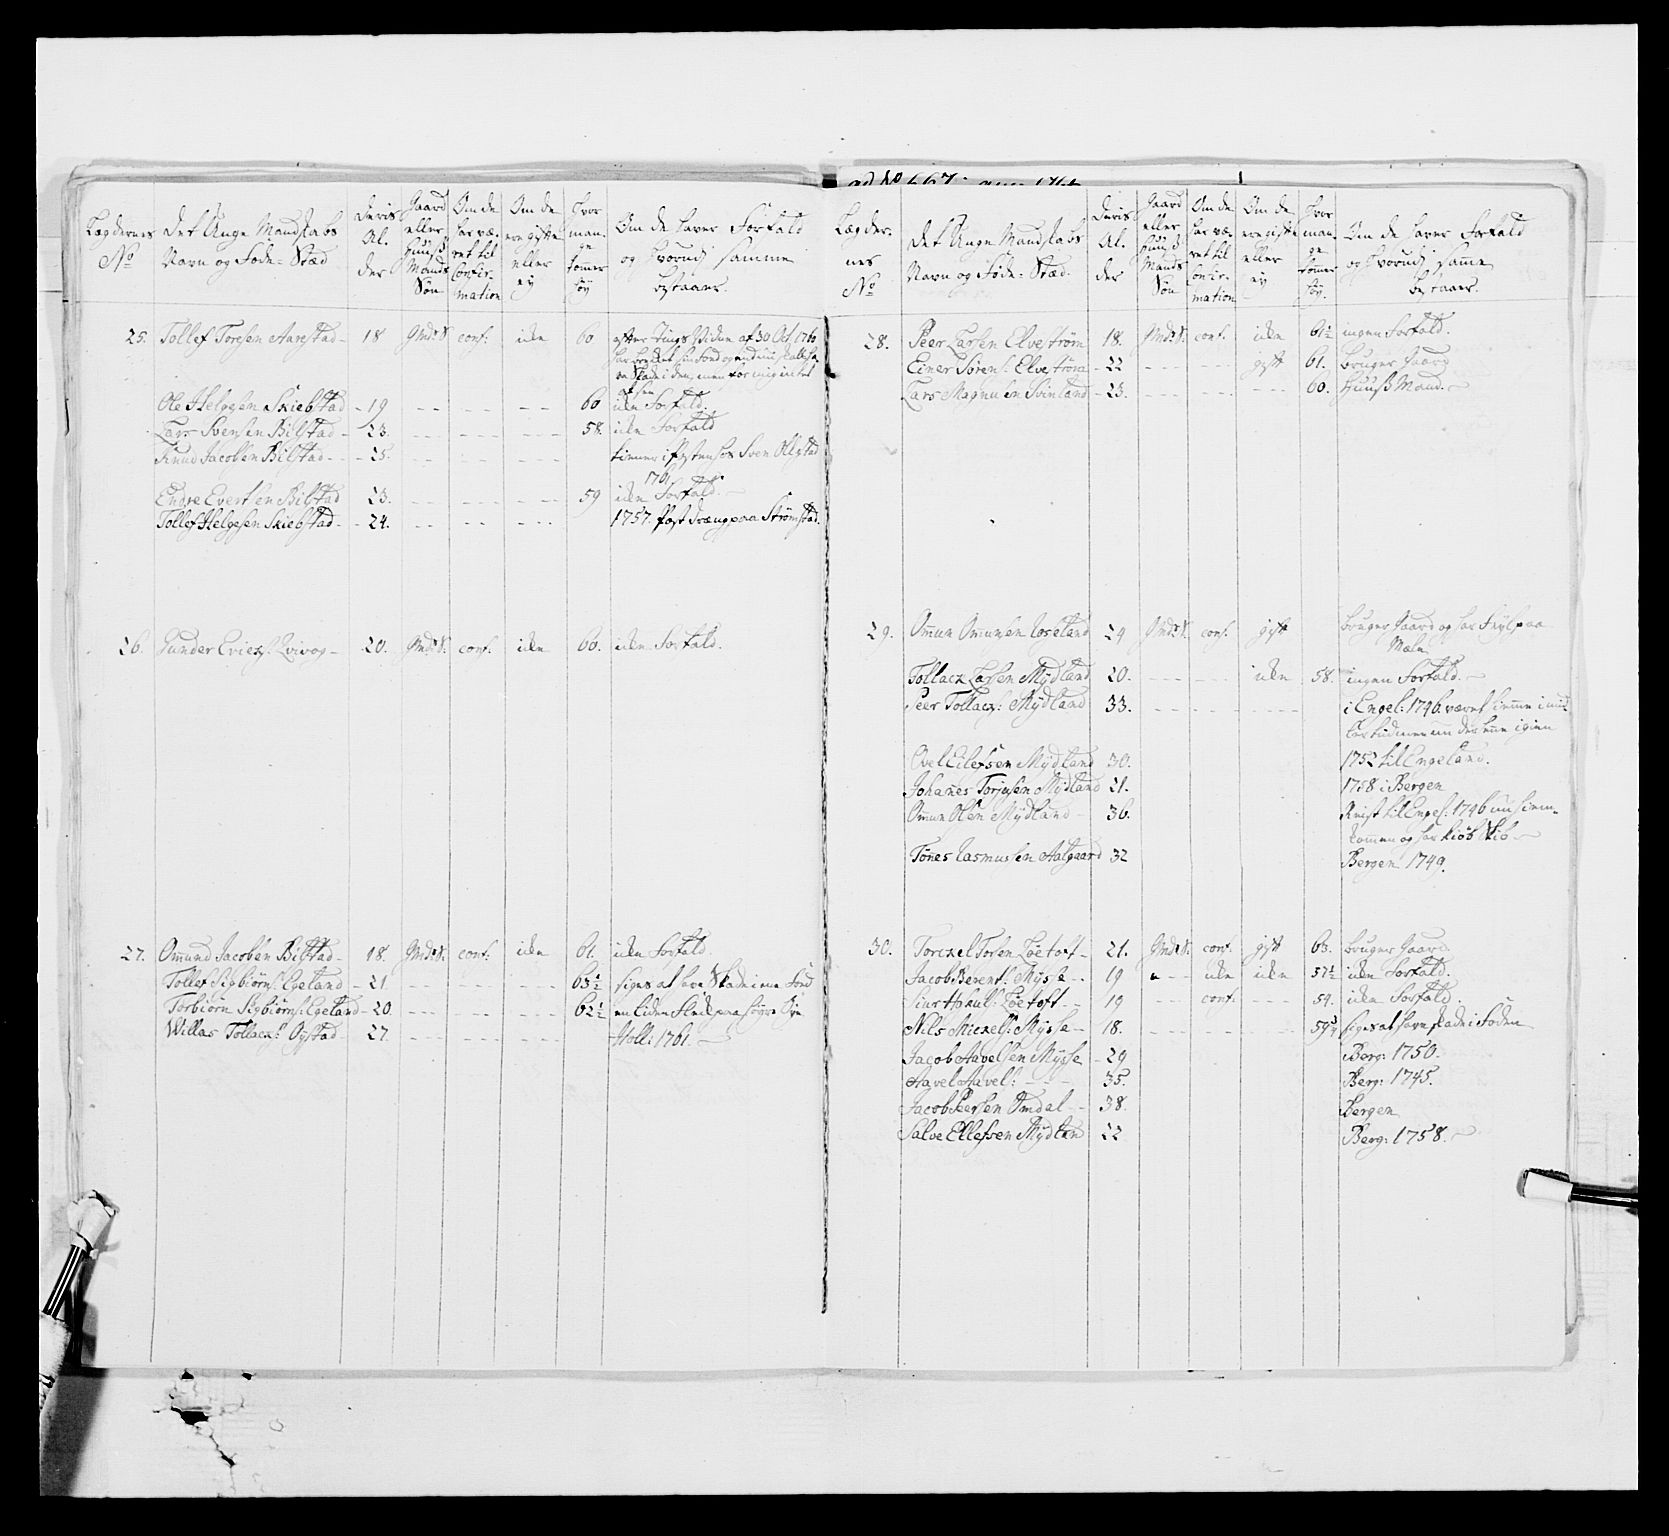 Lægdernes No | Det Unge Mandskabs Navn og Føde-Stæd | Deris Al. der | Gaard eller Huus Mands Søn | Om de har væ. ret til Confir- mation | Om de ere gifte eller ey | Hvor man- ge tommer høy | Om de haver Forfald og hvorudj samme bestaaer.
25. Tollef Toresen Aarestad - 18 Gmds S. conf. icke 60 efter Tings Vidne af 30 Oct 1760
Ole Helgesen Skiebstad - 19 60 icke Forfald.
Lars Svensen Bilstad - 23. 58. icke Forfald
Knud Jacobsen Bilstad - 25.
1761
Endre Evertsen Bilstad 23. 59 icke Forfald.
Tollef Helgesen Skiebstad - 24. 1757. Post Dreng paa Strømstad.
26. Gunder Erichs: - 20. Gmds S. conf. icke 60. icke Forfald.
27. Omund Jacobsen Bilstad - 18. Gmds S. conf: icke 61. icke Forfald.
Tollef Sigbiørns: Egeland - 21. 63½ siges at have Skade i
Torbiørn Sigbiørns: Egeland - 20. 62½ en liden paa høyre Øye
Willas Tollacs: Øystad 27. Holl: 1761.
Lægder- nes No | Det Unge Mandskabs Navn og Føde-Stæd. | Deris Al. der | Gaard eller Huus Mands Søn | Om de har væ. ret til Confir- mation | Om de ere gifte eller ey | Hvor man- ge tommer høy. | Om de haver Forfald og hvorudj samme bestaaer.
28. Peer Larsen Elvestrøm 18. Gmds S. conf. icke 61½ ingen Forfald.
Einer Sørens: Elvestrøm - 22 gift 61. bruger Gaard
Lars Magnusen Svinland - 23. 60. Huuß Mand.
29. Omun Omunsen Roseland 29 Gmds S. conf. gift bruger Gaard og har
Tollack Larsen Mydland 20. icke 58. ingen Forfald.
Peer Tollacs: Mydland 33. i Engel: 1746. været hiemme
igien
Ovel Eilefsen Mydland 30. 1752 til Engeland.
Johanes Torjusen Mydland 21. 1758 i Bergen
Omun Olsen Mydland 36. Reist til Engel: 1746 nu hiem-
kommen og har
Tønes Rasmussen Aalgaard 32 Bergen 1749.
30. Torckel Torsen Løetoft - 21. Gmds S. conf. gift 63. bruger Gaard
Jacob Berents: Mysse 19 icke icke 57½ icke Forfald.
Siur Hakuls: Løetoft - 19 conf. 59. icke Forfald.
Nils Mickels: Mysse - 18. 59¾ siges at have skade i Foden
Jacob Aavelsen Mysse - 29 Berg: 1750.
Aavel Aavels: 35. Berg: 1745.
Jacob Peersen Omdal - 38. Bergen
Salve Ellefsen Mydlan 22 Berg: 1758.